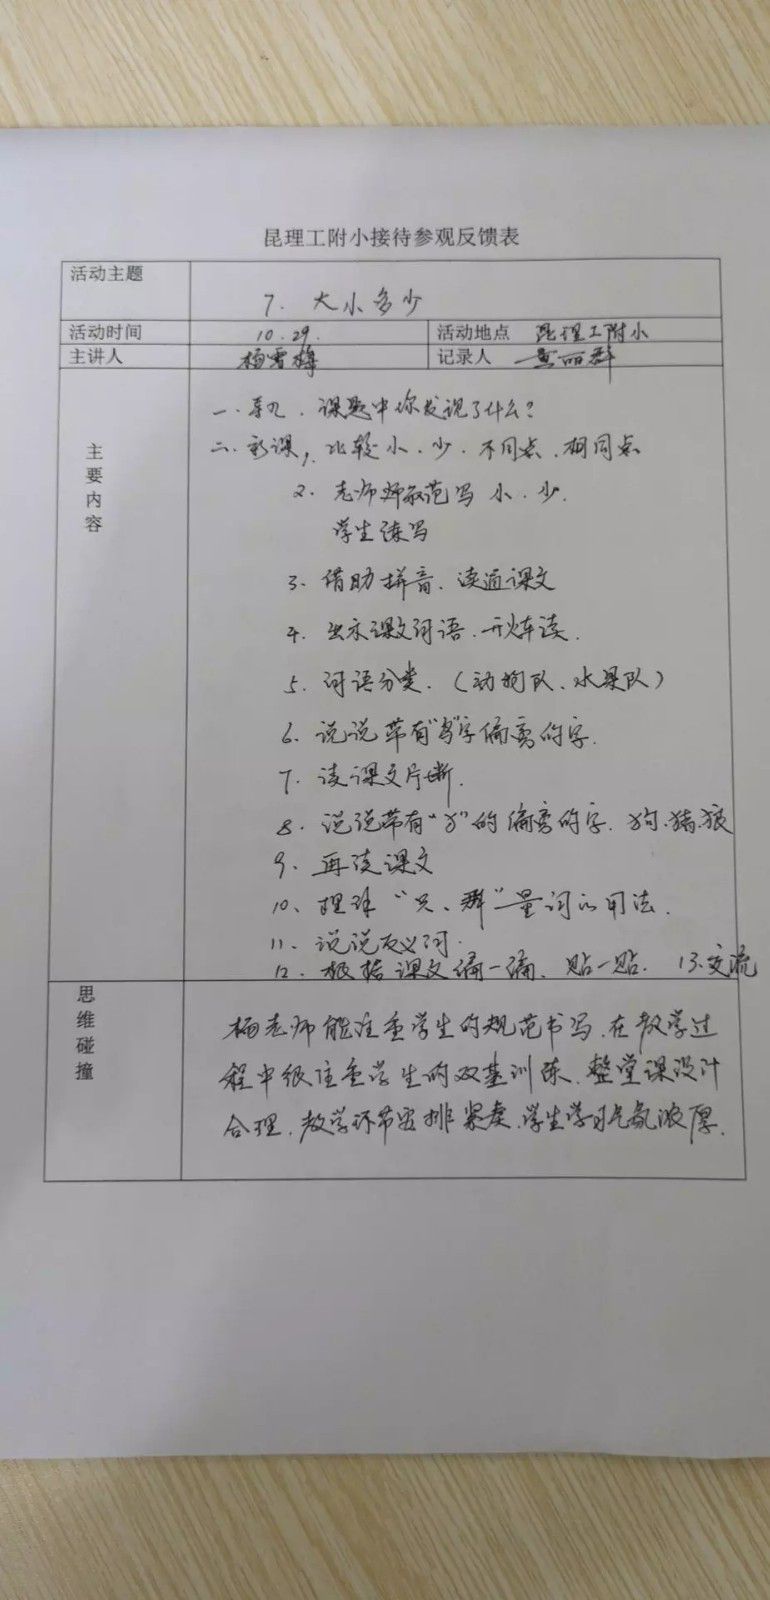 昆理工附小接待参观反馈表
活动主题
7. 大小多少
活动时间 10.29. 活动地点 昆理工附小
主讲人 杨雪梅 记录人 黄丽群
主要内容
一. 导入. 课题中你发现了什么?
二. 新课, 1. 比较小.少. 不同点.相同点
2. 老师师示范写 小.少.
学生练写
3. 借助拼音. 读通课文
4. 出示课文词语.开火车读.
5. 词语分类. (动物队、水果队)
6. 说说带有"鸟"字偏旁的字.
7. 读课文片断.
8. 说说带有"犭"的偏旁的字. 狗.猪.狼
9. 再读课文
10、理解"只、群"量词的用法.
11、说说反义词.
12、根据课文编一编、贴一贴. 13.交流
思维碰撞
杨老师能注重学生的规范书写.在教学过
程中很注重学生的双基训练、整堂课设计
合理.教学环节安排紧凑.学生学习气氛浓厚.